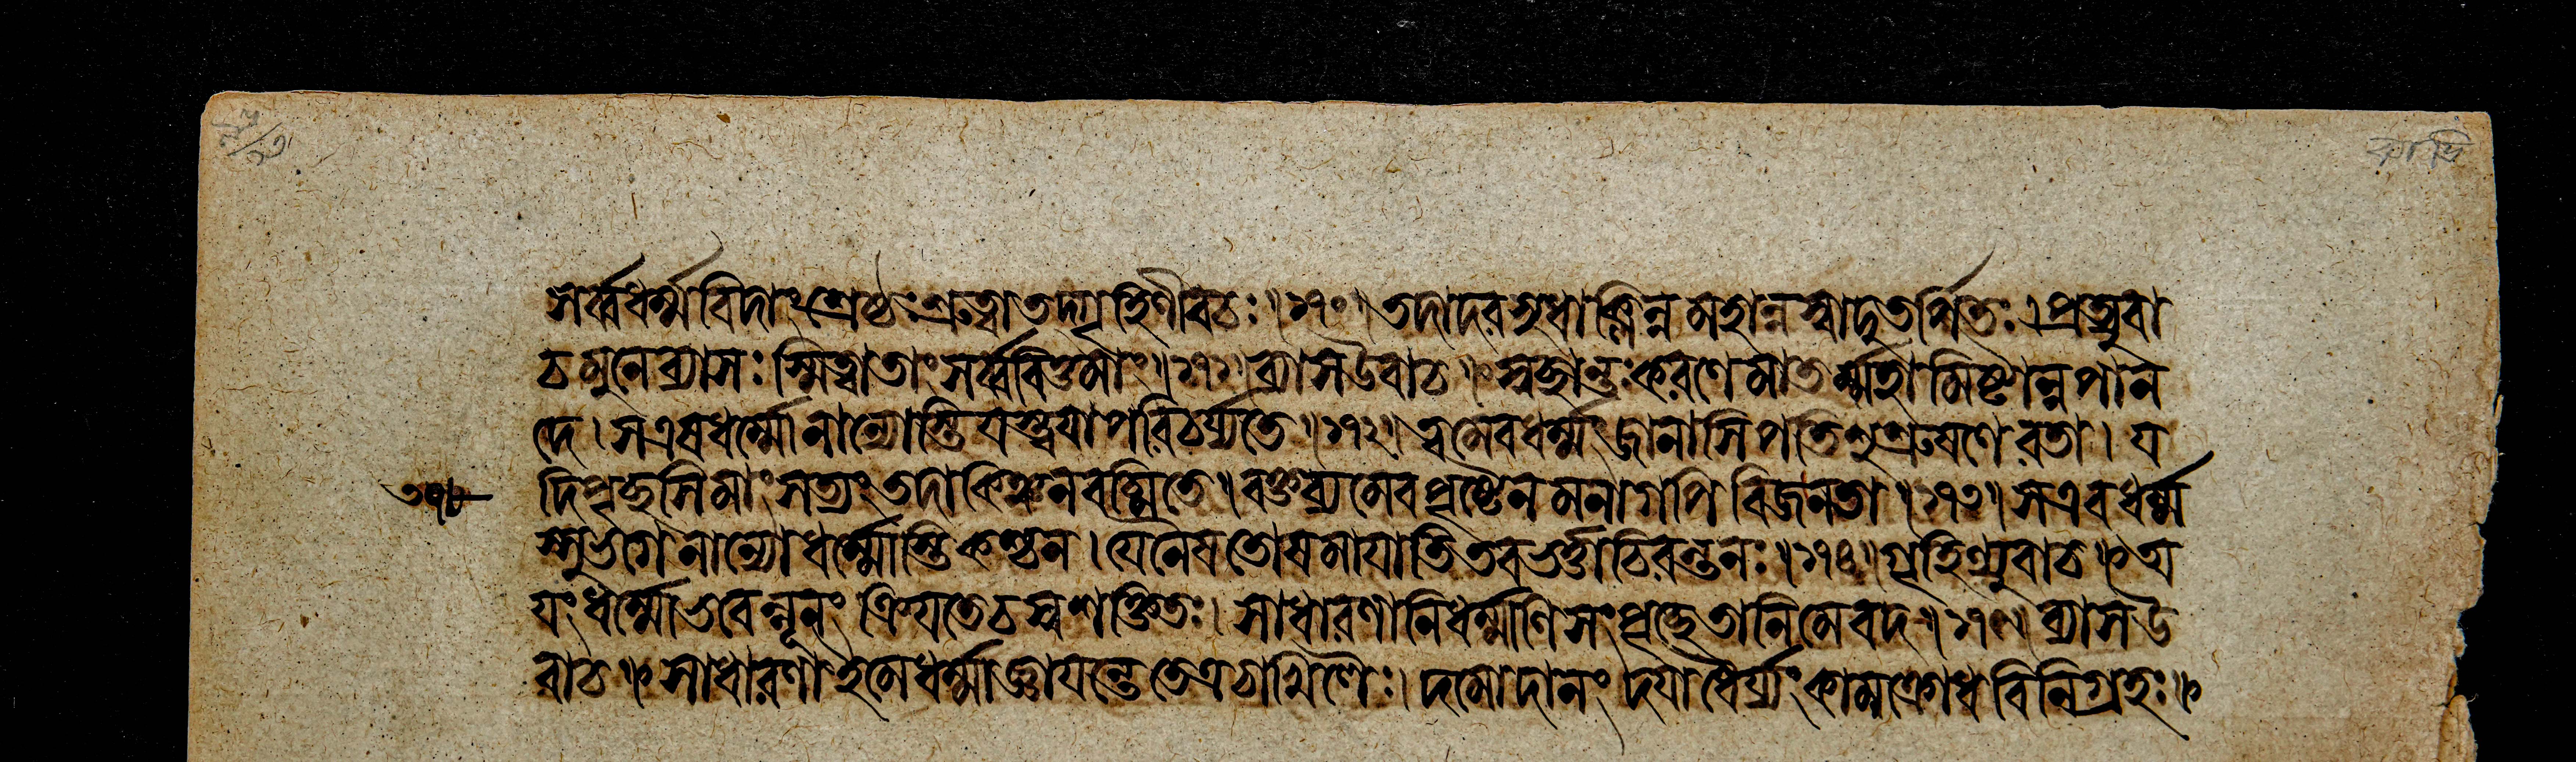 সর্ব্বধর্ম্মবিদাং শ্রেষ্ঠঃ শ্রুত্বা তদ্গৃহিণীবচঃ ॥ ১৭০ ॥ তদাদরসুধাক্লিন্ন মহান্নস্বাদুতর্পিতঃ । প্রত্যুবা
চ মুনে ব্যাসঃ স্মিত্বা তাং সর্ব্ববিত্তমাং ॥ ১৭১ ॥ ব্যাস উবাচ ॥ স্বচ্ছান্তঃকরণে মাতর্ম্মহামিষ্টান্নপান
দে । স এষ ধর্ম্মো নান্যোস্তি যস্ত্বয়া পরিচর্য্যতে ॥ ১৭২ ॥ ত্বমেব ধর্ম্মং জানাসি পতিশুশ্রূষণে রতা । য
দি পৃচ্ছসি মাং সত্যং তদা কিঞ্চন বচ্মি তে । বক্তব্যমেব পৃষ্টেন মনাগপি বিজনতা ॥ ১৭৩ ॥ স এব ধর্ম্ম
স্সুভগে নান্যো ধর্ম্মোস্তি কশ্চন । যেনৈষ তোষমায়াতি তব ভর্ত্তা চিরন্তনঃ ॥ ১৭৪ ॥ গৃহিণ্যুবাচ ॥ অ
য়ং ধর্ম্মো ভবেন্নূনং ক্রিয়তে চ স্বশক্তিতঃ । সাধারণানি ধর্ম্মাণি সংপৃচ্ছে তানি মে বদ ॥ ১৭৫ ॥ ব্যাস উ
বাচ ॥ সাধারণা ইমে ধর্ম্মা জ্ঞায়ন্তে তে
দমো দানং দয়া ধৈর্য্যং কামক্রোধবিনিগ্রহঃ ॥